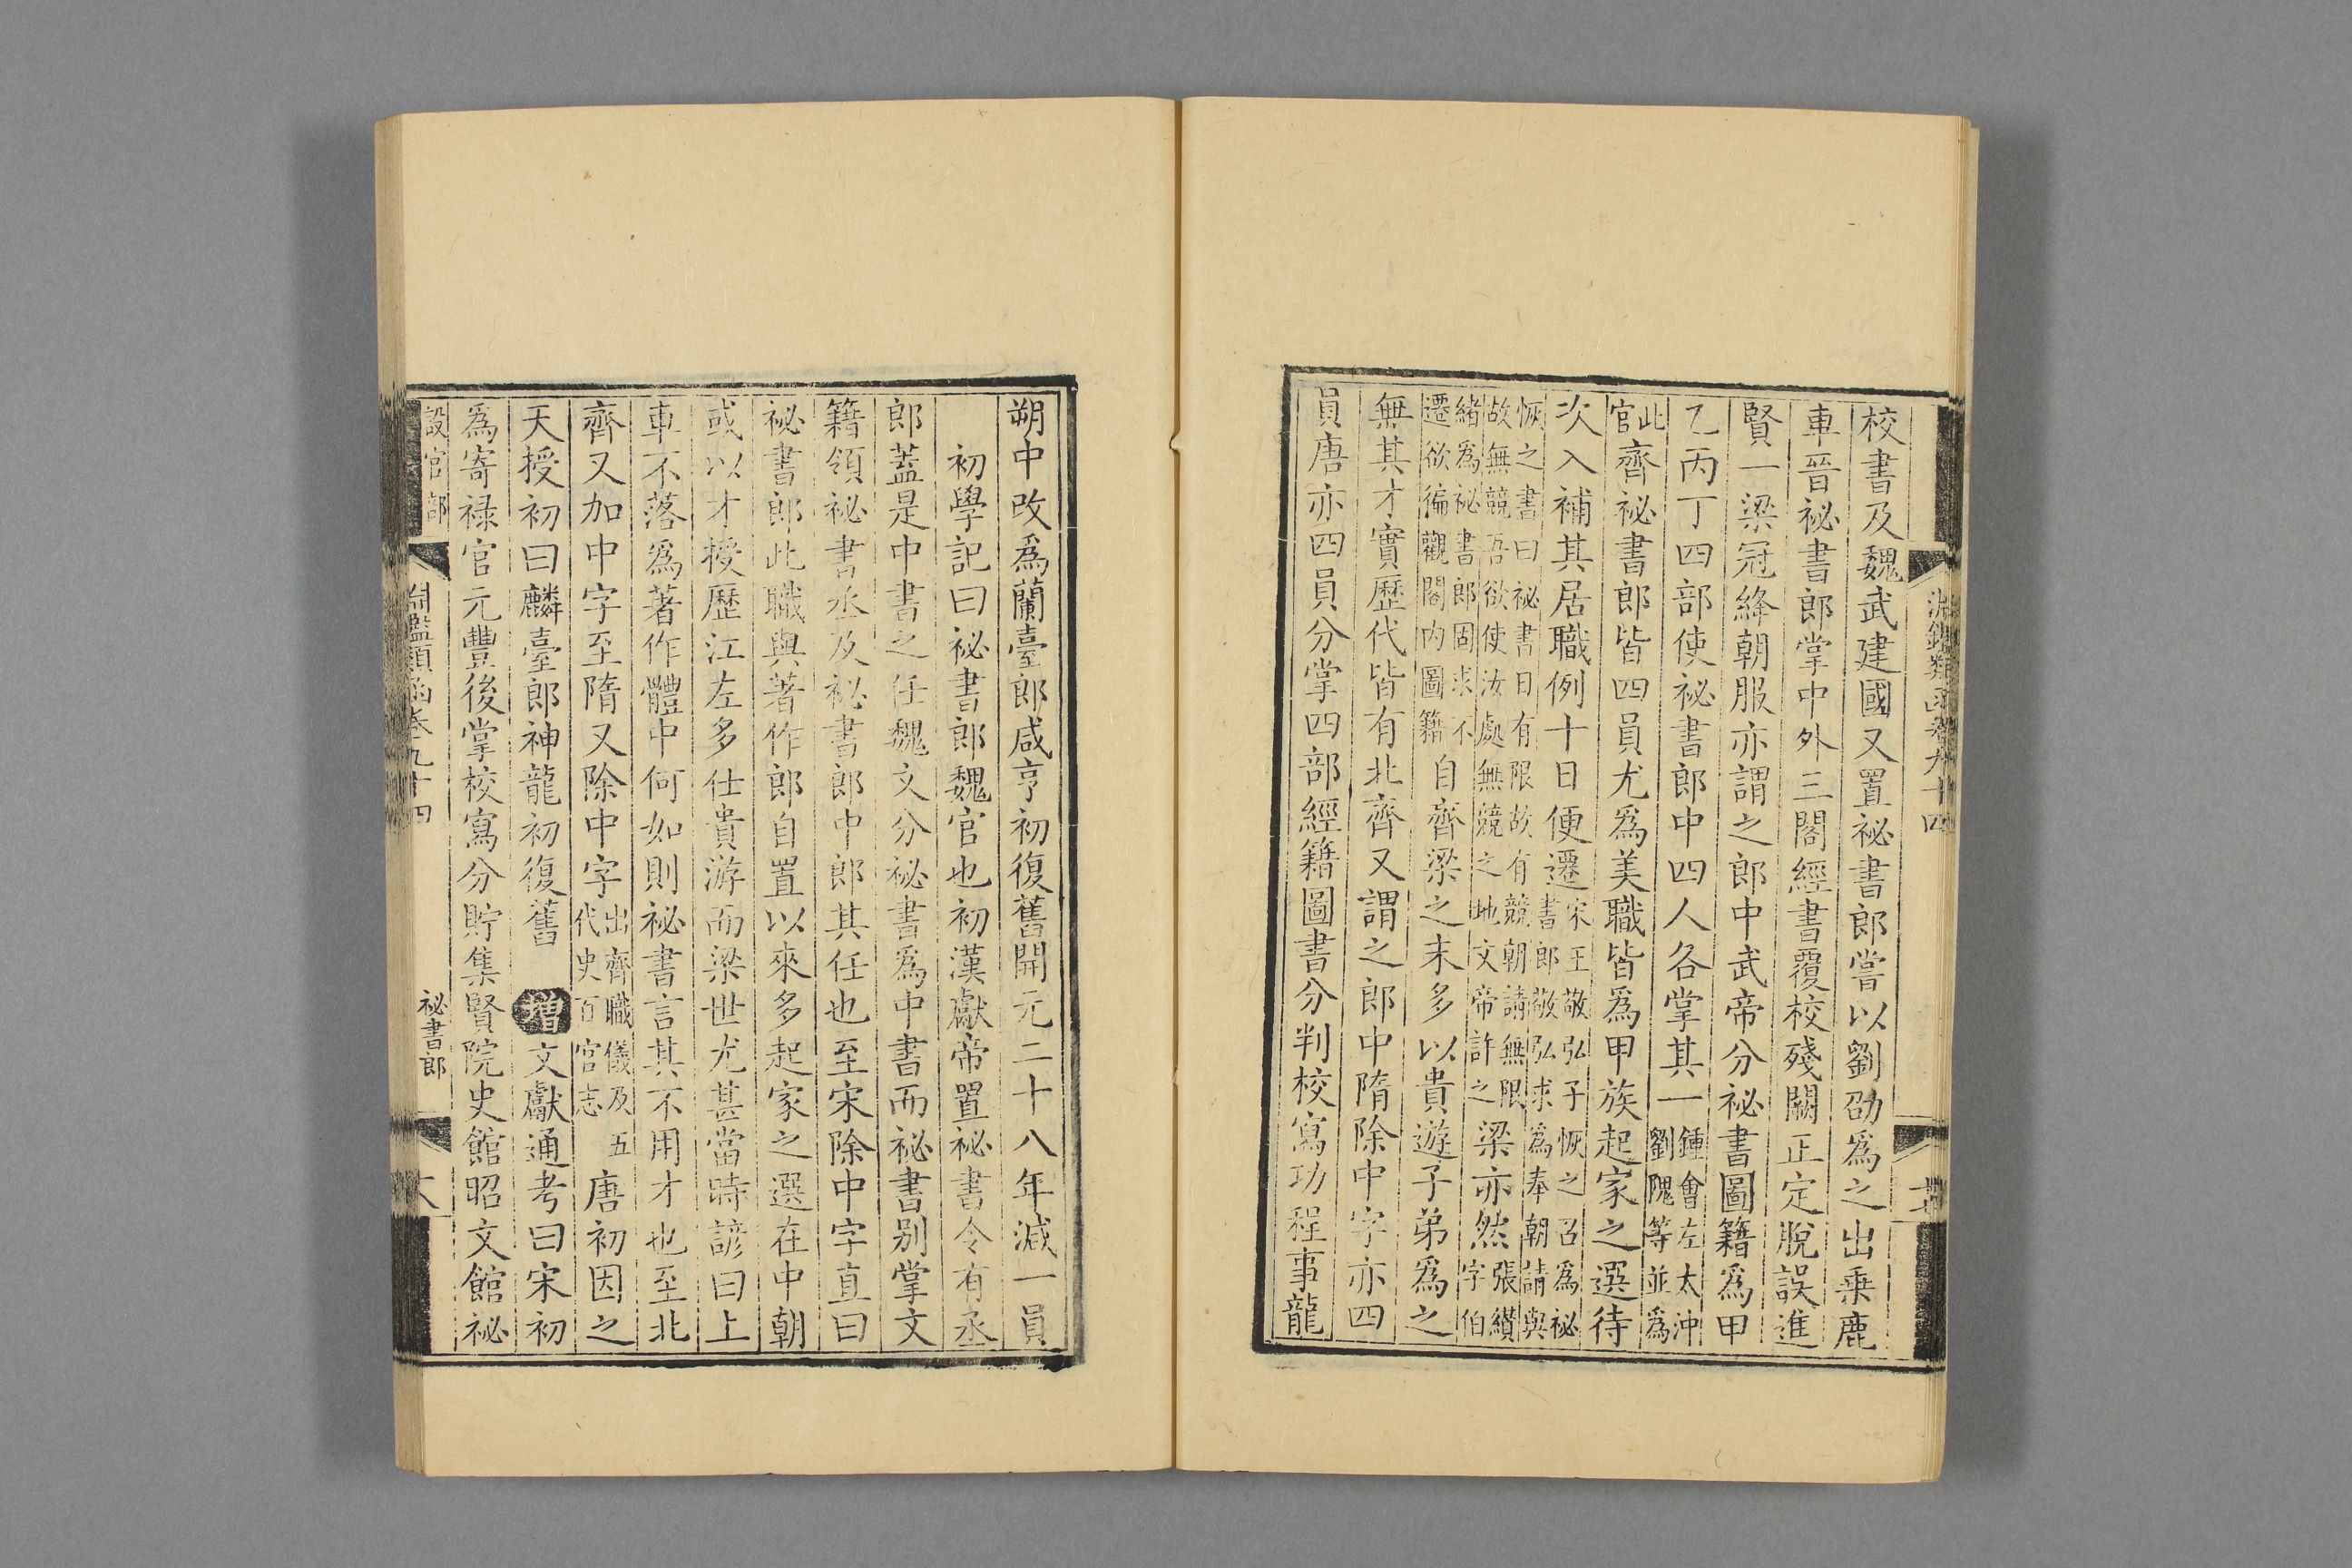 校書及魏武建國又置祕書郎嘗以劉劭爲之出乗鹿
車晉祕書郎掌中外三閣經書覆校殘闕正定脫誤進
賢一梁冠絳朝服亦謂之郎中武帝分祕書圖籍爲甲
乙丙丁四部使祕書郎中四人各掌其一鍾會左太沖劉隗等並爲
此官齊祕書郎皆四員尤爲美職皆爲甲族起家之選待
次入補其居職例十日便遷宋王敬弘子恢之召爲祕書郎敬弘求爲奉朝請與
恢之書曰祕書日有限故有競朝請無限故無競吾欲使汝處無競之地文帝許之梁亦然張纘字伯
緒爲祕書郎固求不遷欲徧觀閣内圖籍自齊梁之末多以貴遊子弟爲之
無其才實歷代皆有北齊又謂之郎中隋除中字亦四
員唐亦四員分掌四部經籍圖書分判校寫功程事龍
朔中改爲蘭臺郎咸亨初復舊開元二十八年減一員
初學記曰祕書郎魏官也初漢獻帝置祕書令有丞
郎蓋是中書之任魏文分祕書爲中書而祕書别掌文
籍領祕書丞及祕書郎中郎其任也至宋除中字直曰
祕書郎此職與著作郎自置以來多起家之選在中朝
或以才授歷江左多仕貴游而梁世尤甚當時諺曰上
車不落爲著作體中何如則祕書言其不用才也至北
齊又加中字至隋又除中字出齊職儀及五代史百官志唐初因之
天授初曰麟臺郎神龍初復舊增文獻通考曰宋初
爲寄禄官元豐後掌校寫分貯集賢院史館昭文館祕
設官部
淵鑑類函卷九十四
祕書郎